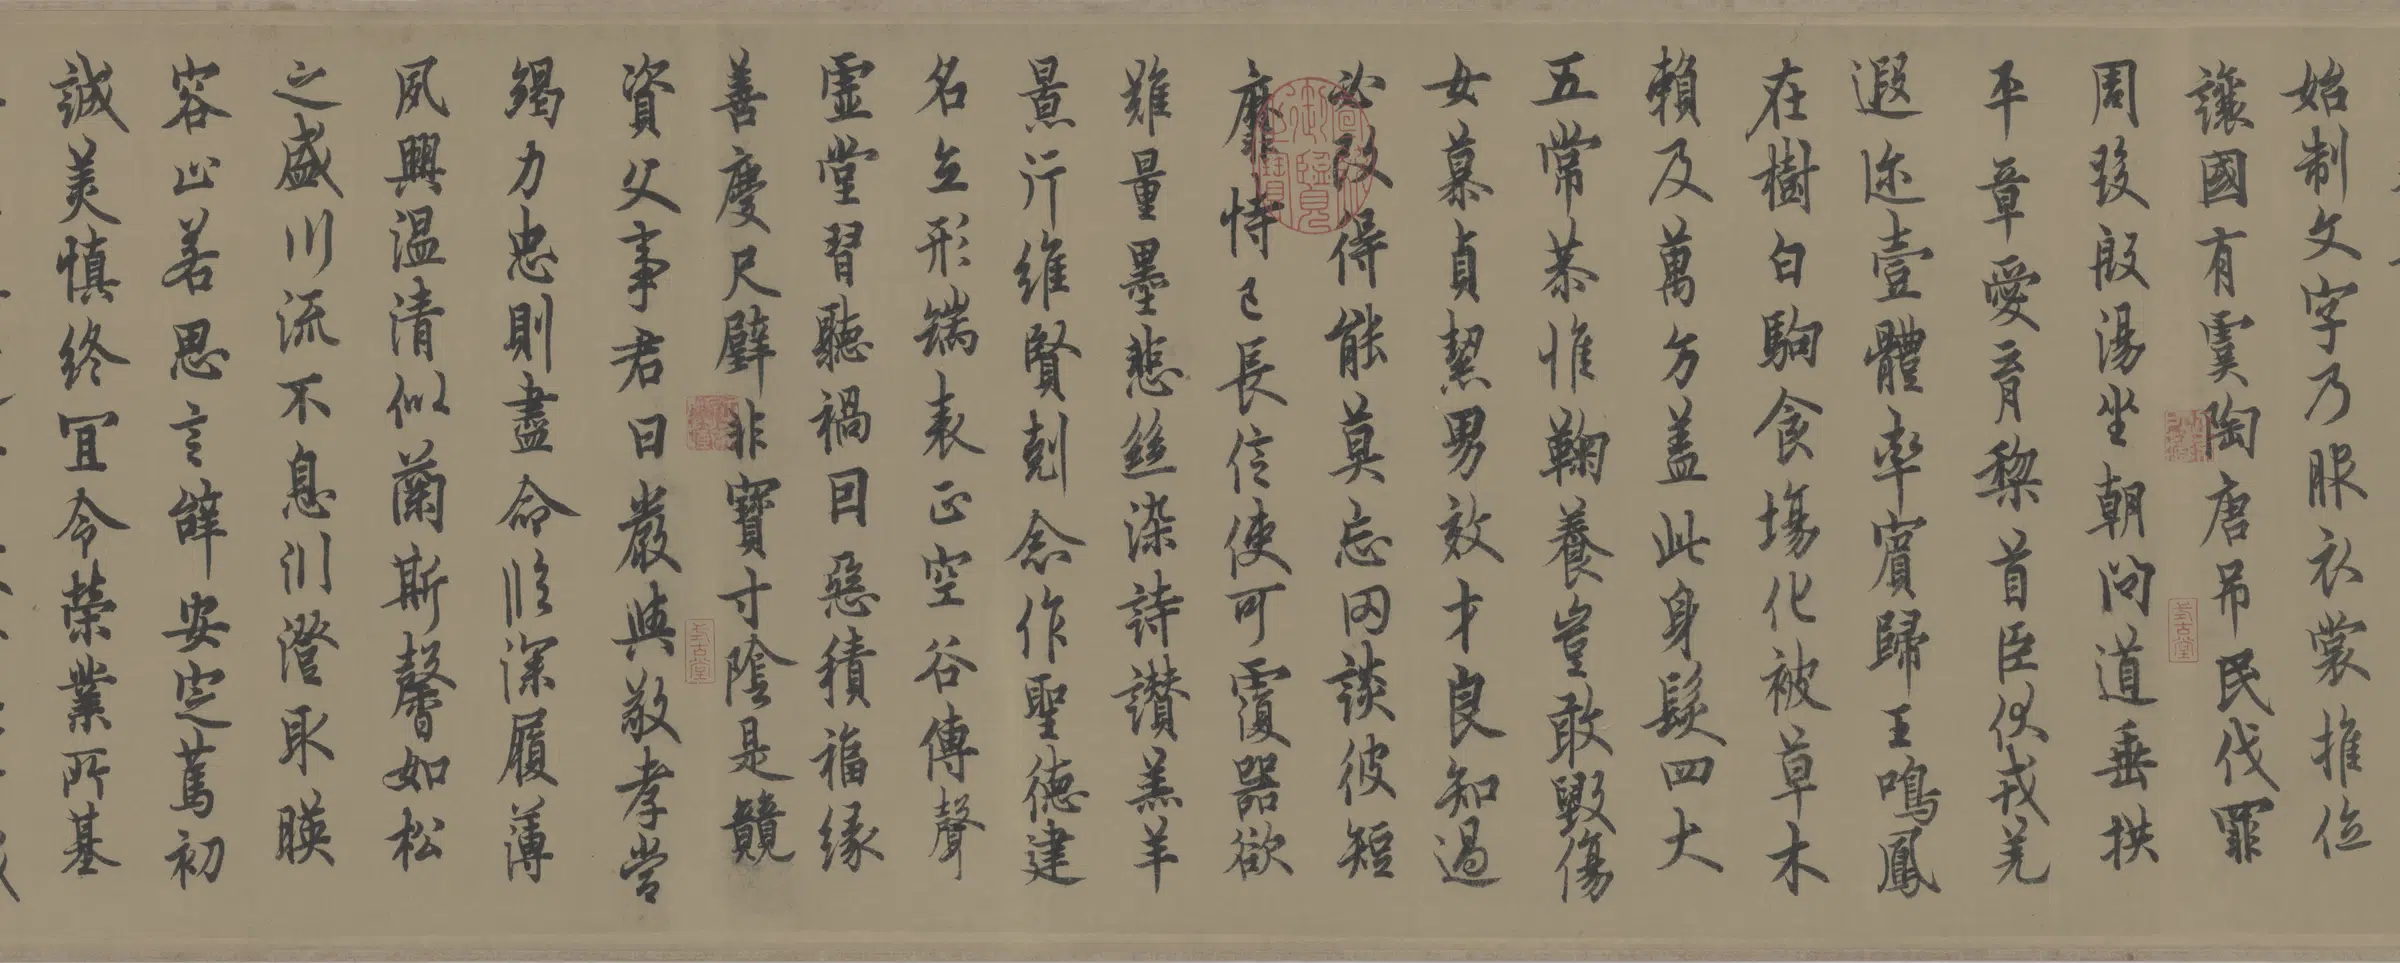 始制文字乃服衣裳推位
讓國有虞陶唐吊民伐罪
周發殷湯坐朝問道垂拱
平章愛育黎首臣伏戎羌
遐迩壹體率賓歸王鳴鳳
在樹白駒食場化被草木
賴及萬方盖此身髮四大
五常恭惟鞠養豈敢毀傷
女慕貞絜男效才良知過
必改得能莫忘罔談彼短
靡恃己長信使可覆器欲
難量墨悲絲染詩讚羔羊
景行維賢剋念作聖德建
名立形端表正空谷傳聲
虛堂習聽禍因惡積福緣
善慶尺璧非寶寸陰是競
資父事君曰嚴與敬孝當
竭力忠則盡命臨深履薄
夙興温清似蘭斯馨如松
之盛川流不息淵澄取暎
容止若思言辭安定篤初
誠美慎終宜令榮業所基